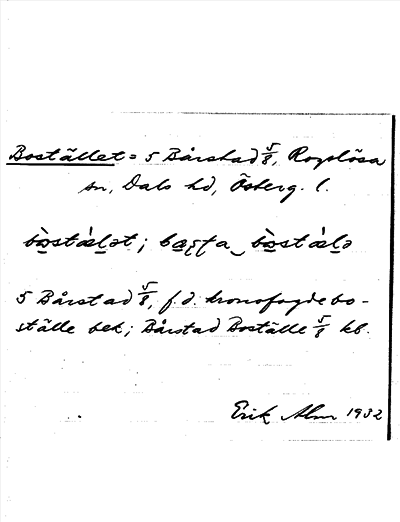 Bostället = 5 Bårstad 5/8, Rogslösa
sn, Dals hd, Österg. l.
5 Bårstad 5/8, f.d. kronofogdebo-
ställe bek; Bårstad Boställe 5/8 kb.
Erik Alm 1932